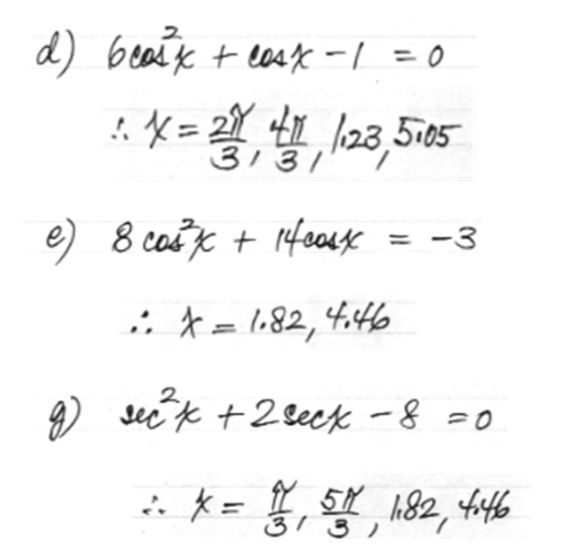 d) 6cos²x + cosx - 1 = 0
∴ x = 2π/3, 4π/3, 1.23, 5.05
e) 8 cos²x + 14cosx = -3
∴ x = 1.82, 4.46
g) sec²x + 2secx - 8 = 0
∴ x = π/3, 5π/3, 1.82, 4.46